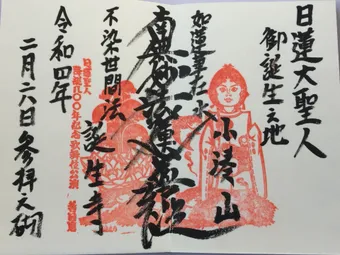 日蓮大聖人
御誕生之地
小湊山
如蓮華在水
南無妙法蓮華経
不染世間法
誕生寺
日蓮聖人
降誕八〇〇年記念歌舞伎公演
令和四年
二月六日参拝之砌